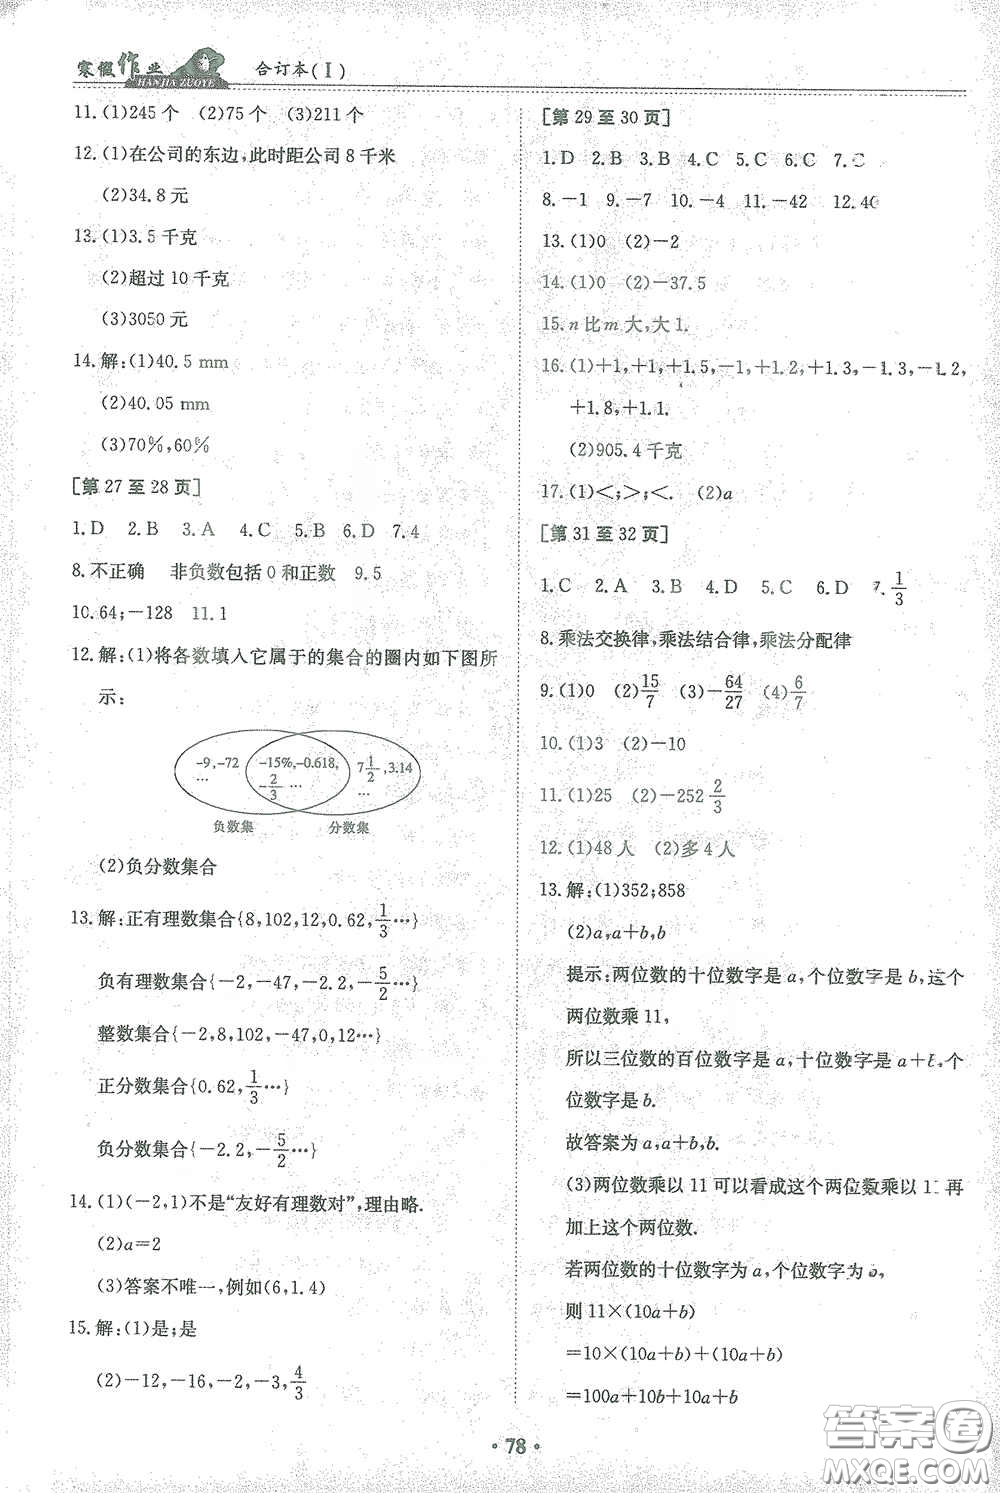 寒假作业 合订本(Ⅰ)
HANJIA ZUOYE
11.(1)245个 (2)75个 (3)211个
12.(1)在公司的东边,此时距公司8千米
(2)34.8元
13.(1)3.5千克
(2)超过10千克
(3)3050元
14.解:(1)40.5 mm
(2)40.05 mm
(3)70%,60%
[第27至28页]
1.D 2.B 3.A 4.C 5.B 6.D 7.4
8.不正确 非负数包括0和正数 9.5
10.64;-128 11.1
12.解:(1)将各数填入它属于的集合的圈内如下图所
示:
-9,-72 -15%,-0.618, 7 1/2 ,3.14
… -2/3 … …
负数集 分数集
(2)负分数集合
13.解:正有理数集合{8,102,12,0.62,1/3…}
负有理数集合{-2,-47,-2.2,-5/2…}
整数集合{-2,8,102,-47,0,12…}
正分数集合{0.62,1/3…}
负分数集合{-2.2,-5/2…}
14.(1)(-2,1)不是“友好有理数对”,理由略.
(2)a=2
(3)答案不唯一,例如(6,1.4)
15.解:(1)是;是
(2)-12,-16,-2,-3,4/3
[第29至30页]
1.D 2.B 3.B 4.C 5.C 6.C 7.C
8.-1 9.-7 10.-4 11.-42 12.40
13.(1)0 (2)-2
14.(1)0 (2)-37.5
15.n比m大,大1.
16.(1)+1,+1,+1.5,-1,+1.2,+1.3,-1.3,-1.2,
+1.8,+1.1.
(2)905.4千克
17.(1)<;>;<. (2)a
[第31至32页]
1.C 2.A 3.B 4.D 5.C 6.D 7.1/3
8.乘法交换律,乘法结合律,乘法分配律
9.(1)0 (2)15/7 (3)-64/27 (4)6/7
10.(1)3 (2)-10
11.(1)25 (2)-252 2/3
12.(1)48人 (2)多4人
13.解:(1)352;858
(2)a,a+b,b
提示:两位数的十位数字是a,个位数字是b,这个
两位数乘11,
所以三位数的百位数字是a,十位数字是a+b,个
位数字是b.
故答案为a,a+b,b.
(3)两位数乘以11可以看成这个两位数乘以10再
加上这个两位数.
若两位数的十位数字为a,个位数字为b,
则11×(10a+b)
=10×(10a+b)+(10a+b)
=100a+10b+10a+b
·78·
答案圈
MXQE.COM